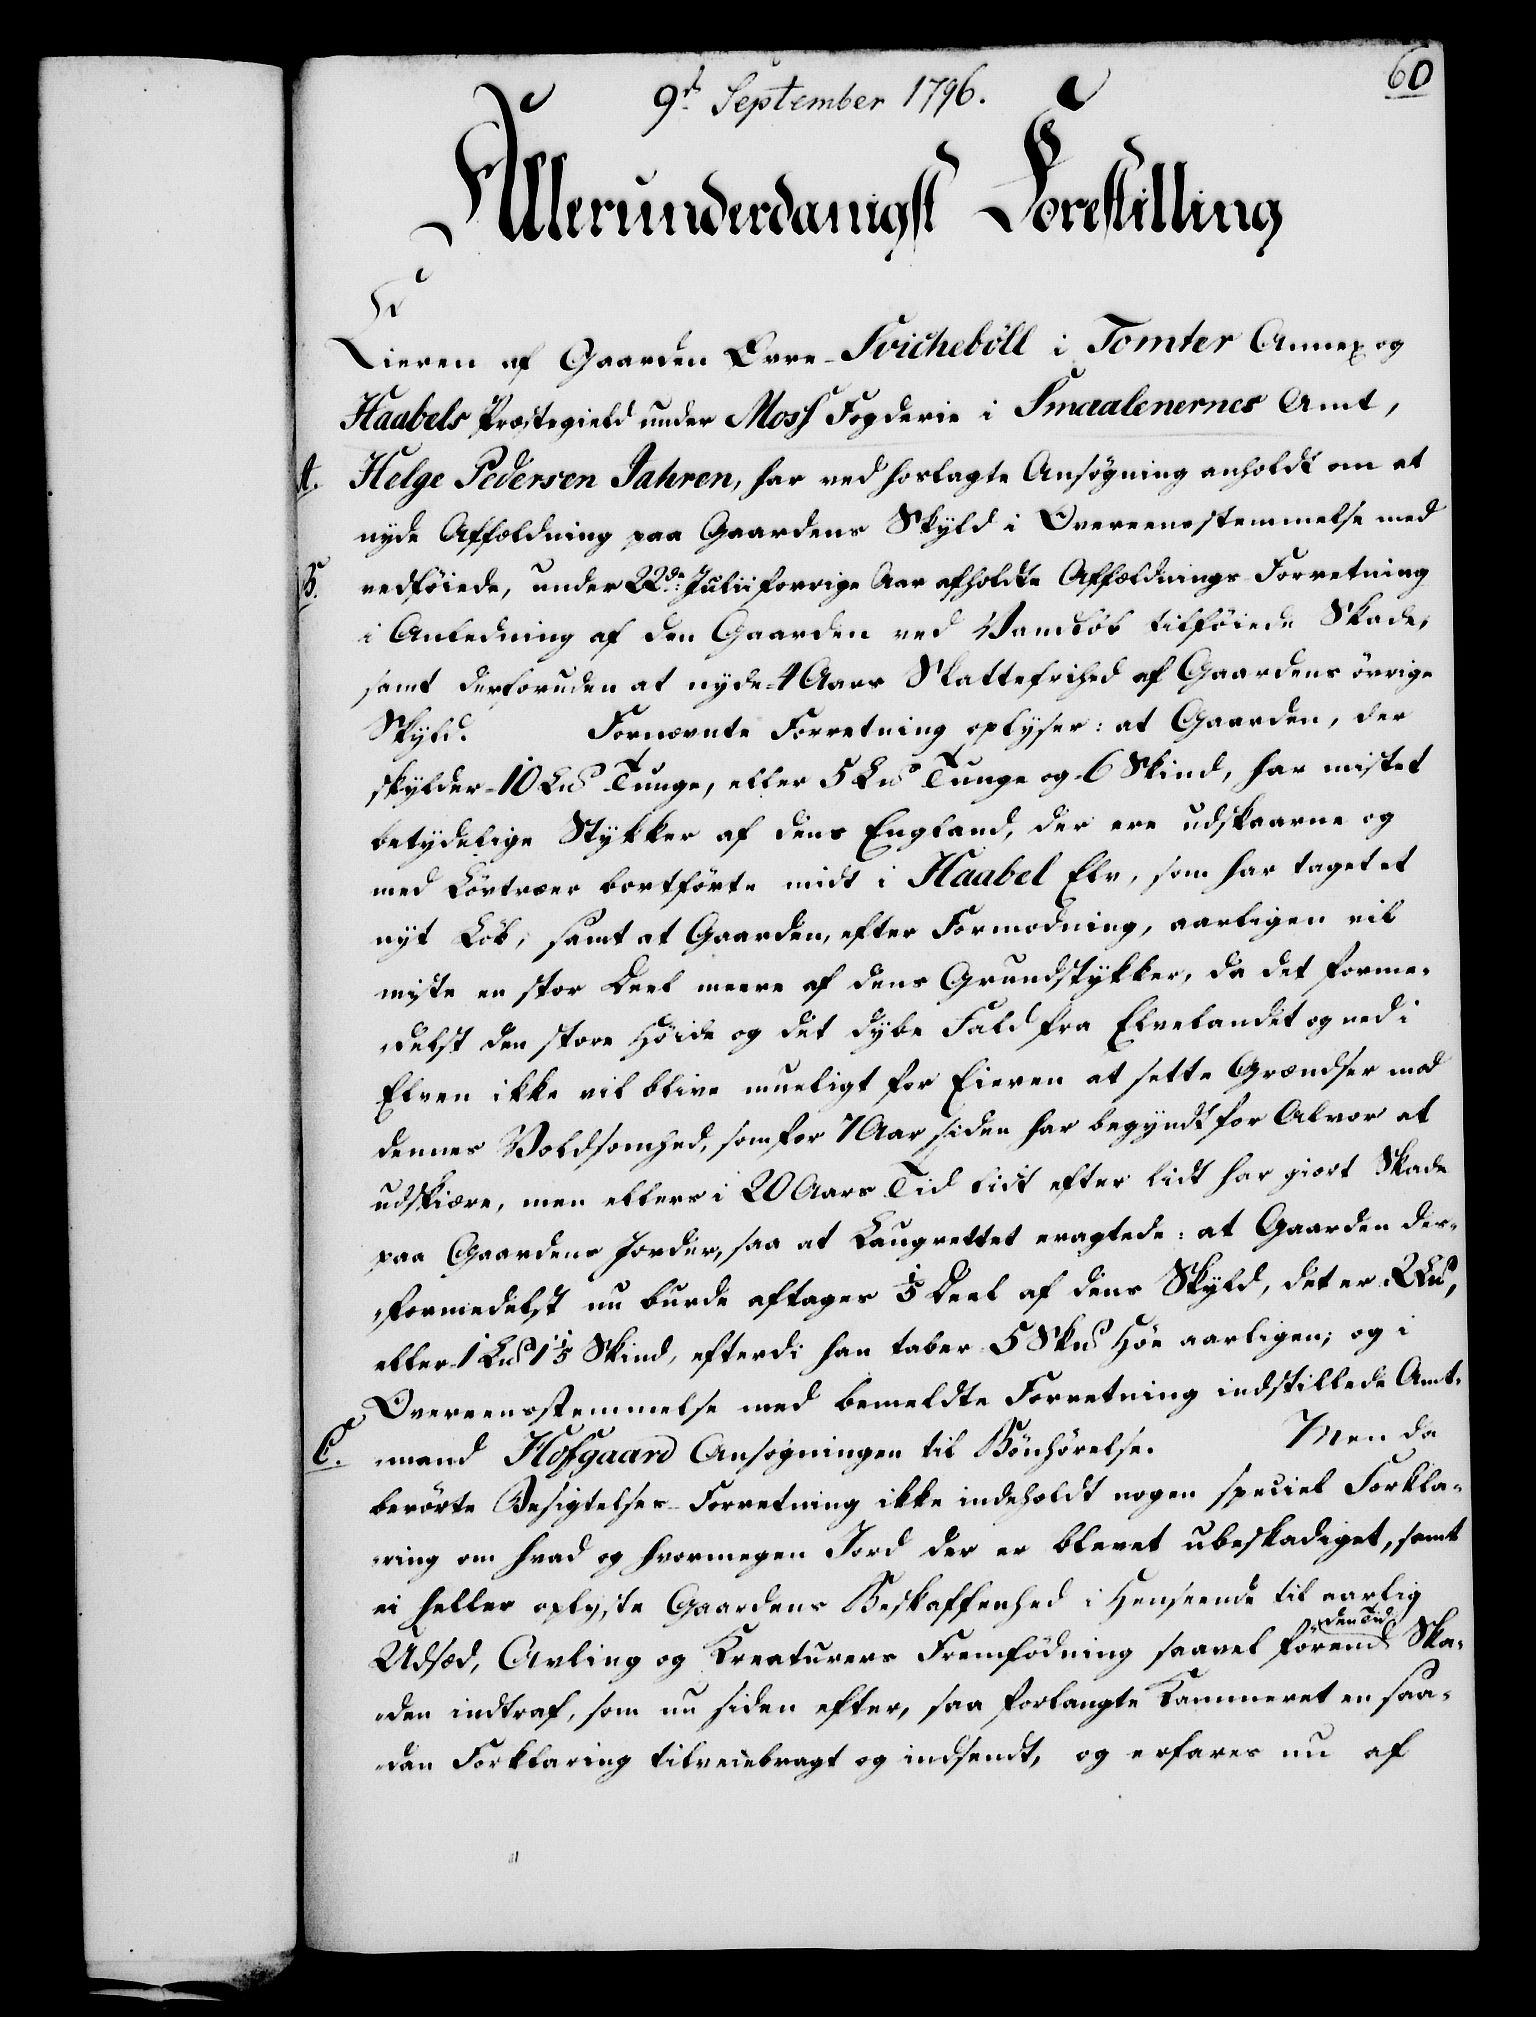 60
9d September 1796.
Allerunderdanigst Forestilling
Eieren af Gaarden Ovre-Svichebøll i Tomter Annex og
Haabels Præstegield under Moss Fogderie i Smaalenernes Amt,
A. Helge Pedersen Jahren, har ved hoslagte Ansøgning anholdt om at
nyde Affældning paa Gaardens Skyld i Overeensstemmelse med
B. vedføiede, under 22de Julii forrige Aar afholdte Affældnings-Forretning
i Anledning af den Gaarden ved Vandløb tilføiede Skade,
samt desforuden at nyde 4 Aars Skattefrihed af Gaardens øvrige
Skyld. Fornævnte Forretning oplyser: at Gaarden, der
skylder 10 Lud Tunge, eller 5 Lud Tunge og 6 Skind, har mistet
betydelige Stykker af dens England, der ere udskaarne og
med Løvtræer bortførte midt i Haabel Elv, som har taget et
nyt Løb, samt at Gaarden, efter Formodning, aarligen vil
miste en stor Deel meere af dens Grundstykker, da det forme-
delst den store Høide og det dybe Fald fra Elvelandet og ned i
Elven ikke vil blive mueligt for Eieren at sette Grændser mod
dennes Voldsomhed, som for 7 Aar siden har begyndt for Alvor at
udskiære, men ellers i 20 Aars Tid lidt efter lidt har giort Skade
paa Gaardens Jorder, saa at Laugrettet eragtede: at Gaarden des-
formedelst nu burde aftages 1/5 Deel af dens Skyld, det er 2 Lud,
eller 1 Lud 1 1/5 Skind, efterdi han taber 5 Skud Høe aarligen; og i
Overeensstemmelse med bemeldte Forretning indstillede Amt-
C. mand Hofgaard Ansøgningen til Bønhørelse. Men da
berørte Besigtelses-Forretning ikke indeholdt nogen speciel Forkla-
ring om hvad og hvormegen Jord der er blevet ubeskadiget, samt
ei heller oplyste Gaardens Beskaffenhed i Henseende til aarlig
Udsæd, Avling og Kreaturers Fremfødning saavel førend den Tid Ska-
den indtraf, som nu siden efter, saa forlangte Kammeret en saa-
dan Forklaring tilveiebragt og indsendt, og erfares nu af